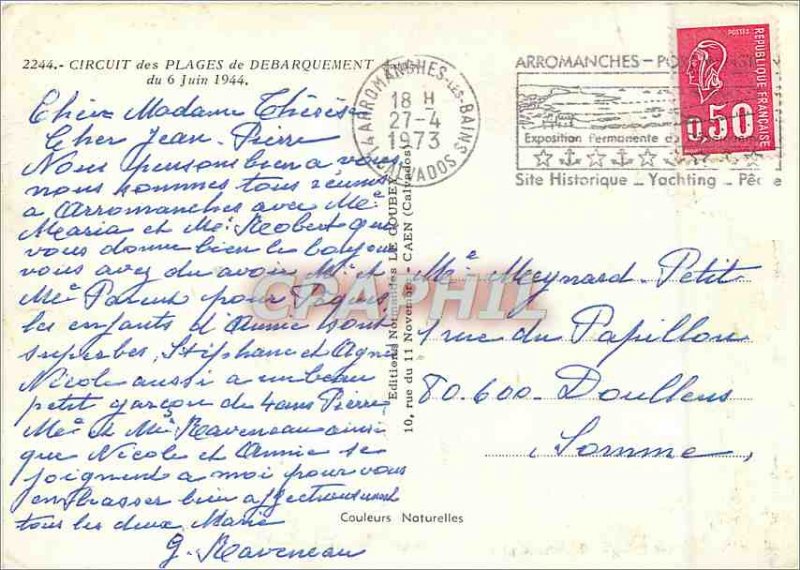 2244.- CIRCUIT des PLAGES de DEBARQUEMENT
du 6 Juin 1944.
Chère Madame Thérèse
Cher Jean-Pierre
Nous pensons bien a vous
nous sommes tous réunis
a Arromanches avec Me
Maria et Mr Robert qui
vous donne bien le bonjour
vous avez du avoir Mr et
Me Parent pour Paques
les enfants d'Annie sont
superbes, Stéphane et Agnès
Nicole aussi a un beau
petit garçon de 4 ans Pierre
Me et Mr Raveneau ainsi
que Nicole et Annie se
joignent a moi pour vous
embrasser bien affectueusement
tous les deux Marie
G. Raveneau
Editions Normandes LE GOUBEY
10, rue du 11 Novembre - CAEN (Calvados)
Couleurs Naturelles
14 ARROMANCHES-LES-BAINS
18 H
27-4
1973
CALVADOS
ARROMANCHES -
Exposition Permanente
Site Historique _ Yachting _ Pêche
POSTES
REPUBLIQUE FRANÇAISE
0,50
Me Meynard-Petit
1 rue du Papillon
80.600 - Doullens
Somme,
CPAPHIL